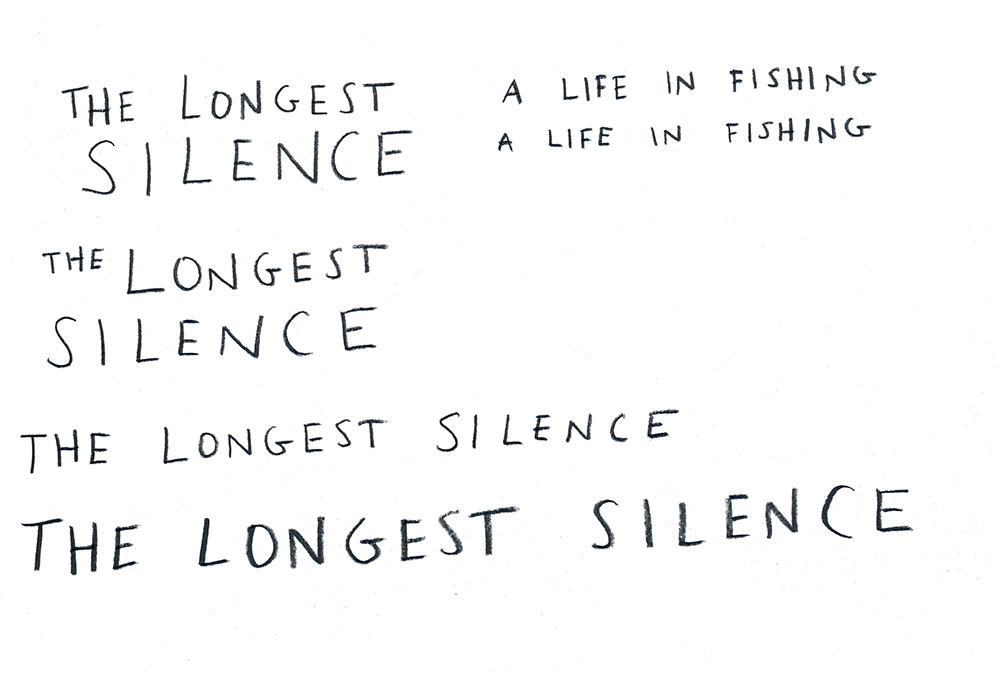 THE LONGEST
SILENCE
A LIFE IN FISHING
A LIFE IN FISHING
THE LONGEST
SILENCE
THE LONGEST SILENCE
THE LONGEST SILENCE